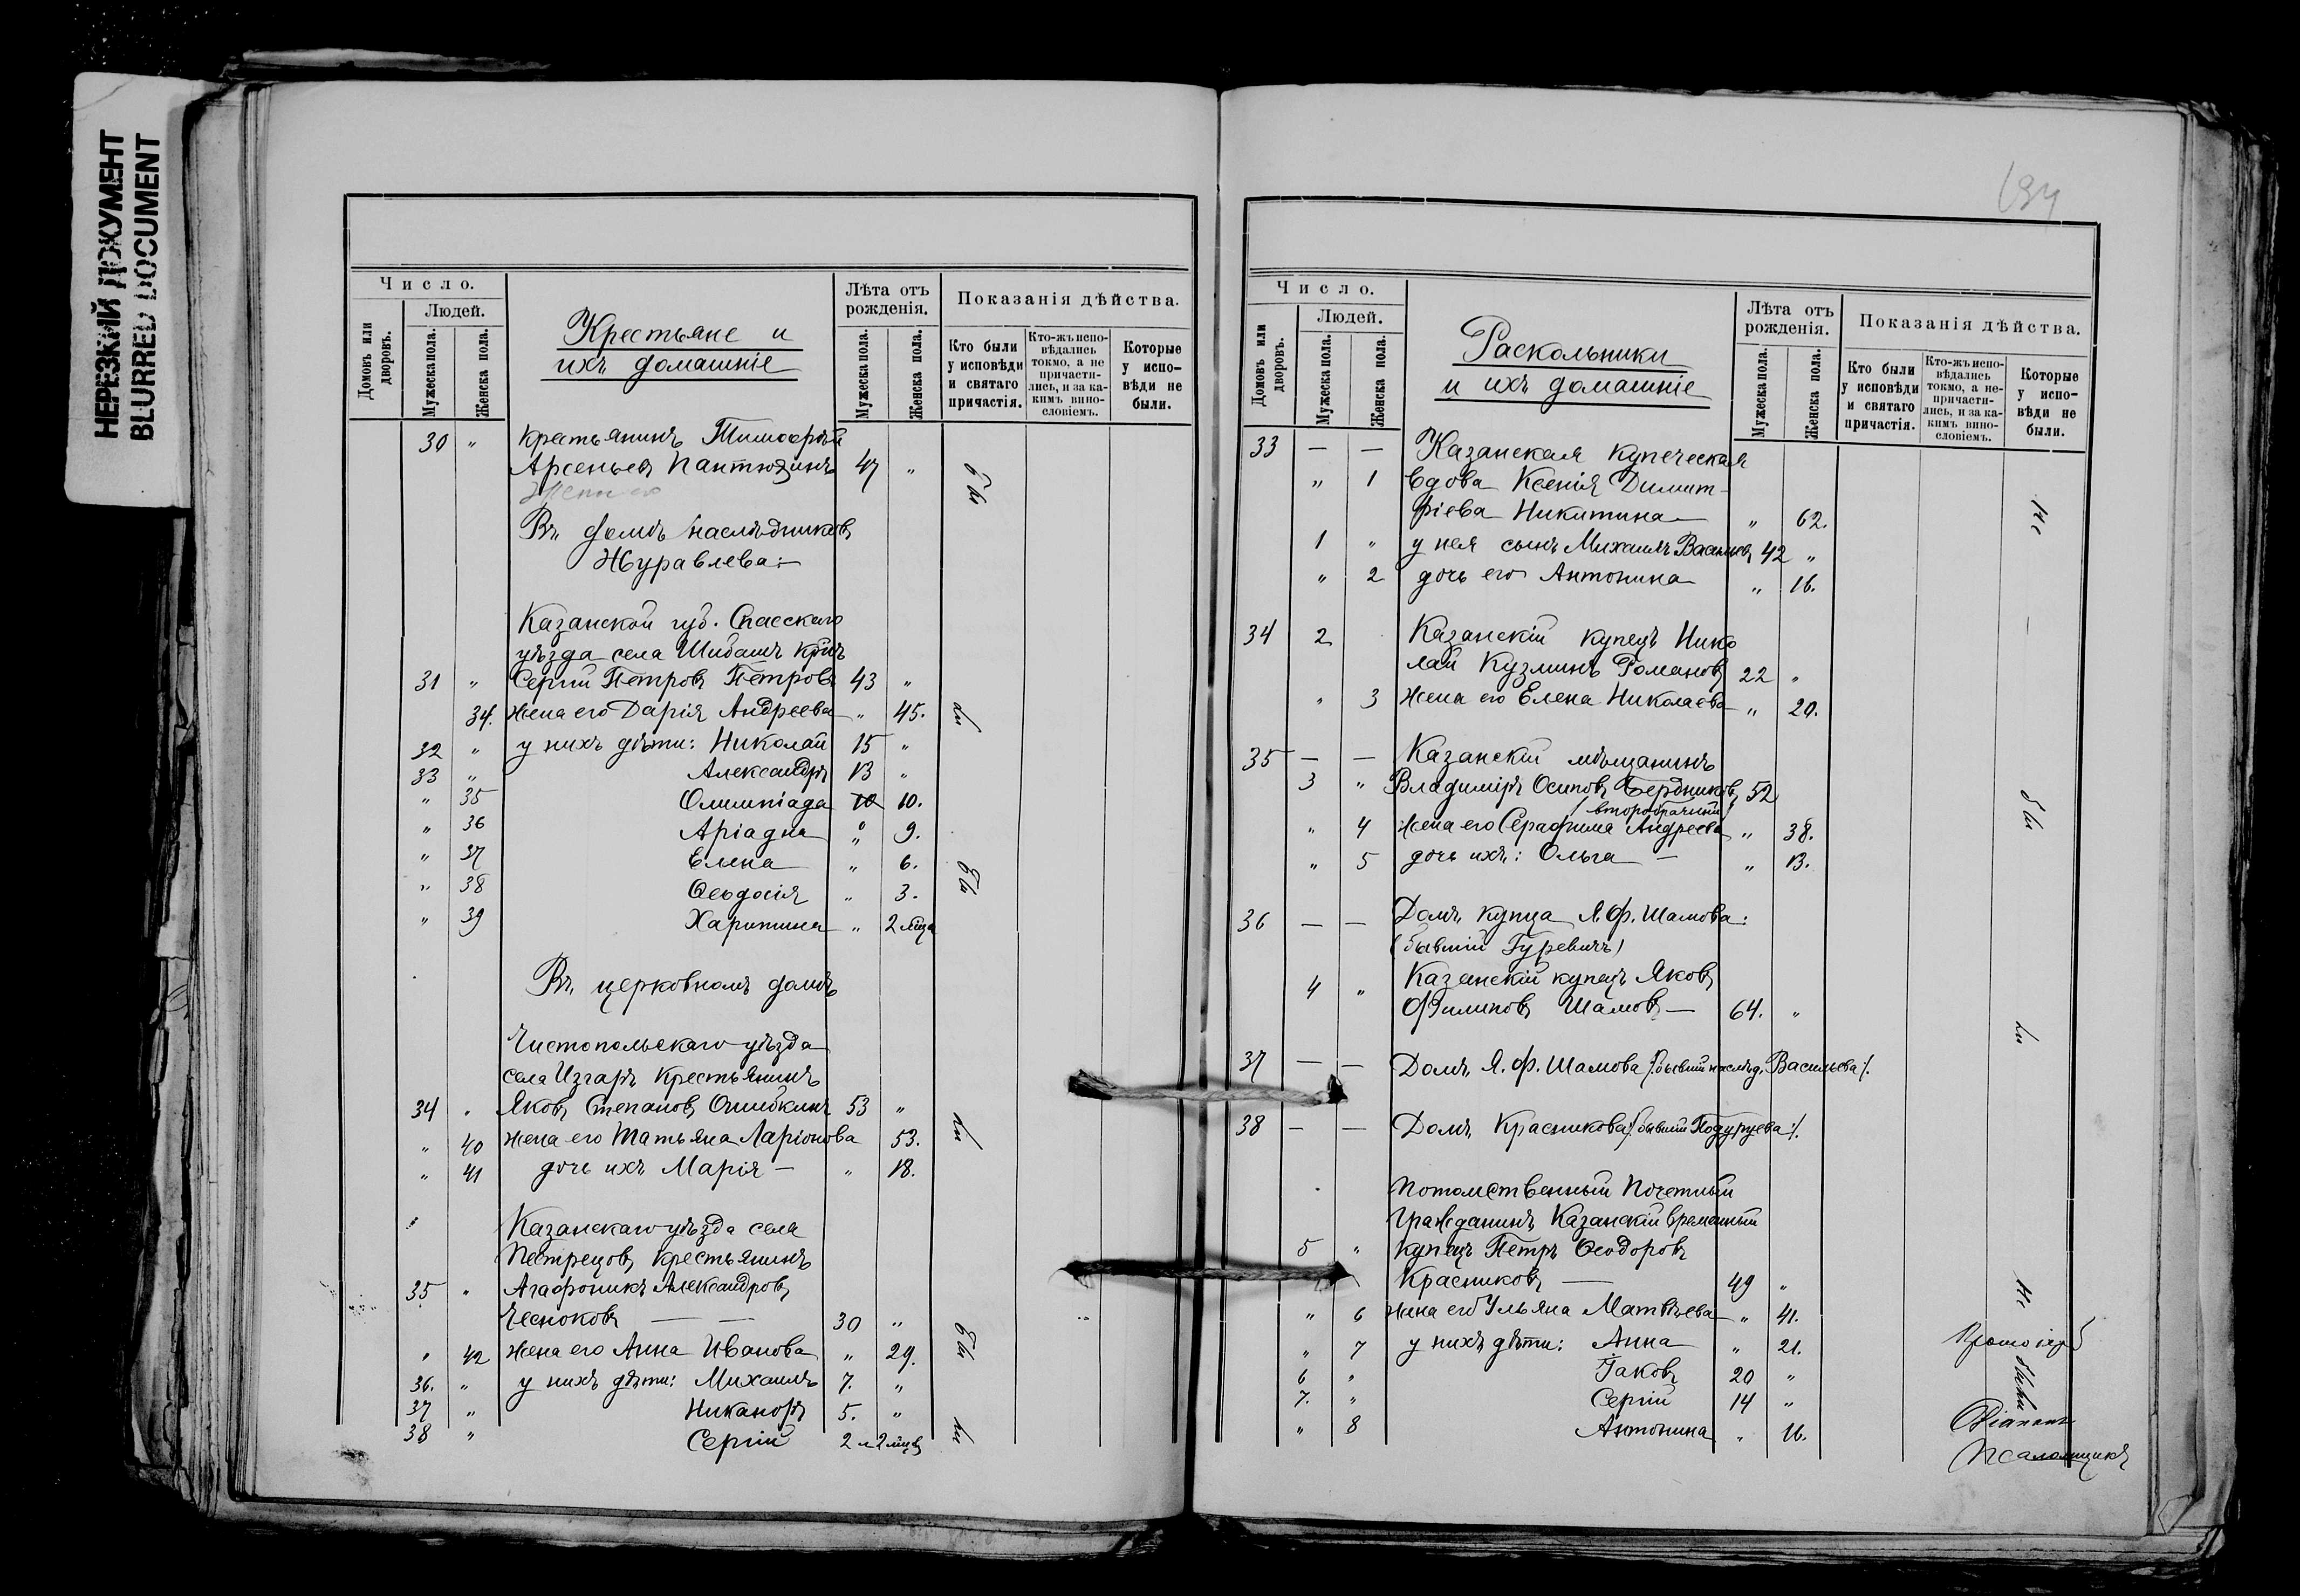 НЕРЕЗКИЙ ДОКУМЕНТ
BLURRED DOCUMENT
Число.
Домовъ или дворовъ.
Людей.
Мужеска пола.
Женска пола.
Крестьяне и
ихъ домашніе
Лѣта отъ рожденія.
Мужеска пола.
Женска пола.
Показанія дѣйства.
Кто были у исповѣди и святаго причастія.
Кто-жъ исповѣдались токмо, а не причастились, и за какимъ винословіемъ.
Которые у исповѣди не были.
30 " Крестьянинъ Тимофѣй
Арсеньевъ Пантюхинъ 47 "
Въ домѣ наслѣдниковъ
Журавлева:
Казанской губ. Спасскаго
уѣзда села Шибашъ кр-нъ
31 " Сергій Петровъ Петровъ 43 "
34. жена его Дарія Андреева " 45.
32 " у нихъ дѣти: Николай 15 "
33 " Александръ 13 "
" 35 Олимпіада 10 10.
" 36 Аріадна " 9.
" 37 Елена " 6.
" 38 Ѳеодосія " 3.
" 39 Харитина " 2 м-ца
Въ церковномъ домѣ
Чистопольскаго уѣзда
села Изгаръ крестьянинъ
34 " Яковъ Степановъ Ошибкинъ 53 "
" 40 жена его Татьяна Ларіонова 53.
" 41 дочь ихъ Марія — " 18.
Казанскаго уѣзда села
Пестрецовъ крестьянинъ
35 " Агафоникъ Александровъ
Чесноковъ — — 30 "
" 42 жена его Анна Иванова " 29.
36. " у нихъ дѣти: Михаилъ 7. "
37 " Никаноръ 5. "
38 " Сергій 2 и 2 м-цв
134
Число.
Домовъ или дворовъ.
Людей.
Мужеска пола.
Женска пола.
Раскольники
и ихъ домашніе
Лѣта отъ рожденія.
Мужеска пола.
Женска пола.
Показанія дѣйства.
Кто были у исповѣди и святаго причастія.
Кто-жъ исповѣдались токмо, а не причастились, и за какимъ винословіемъ.
Которые у исповѣди не были.
33 — — Казанская купеческая
" 1 вдова Ксенія Димит-
ріева Никитина — " 62.
1 " у нея сынъ Михаилъ Васильев. 42 "
" 2 дочь его Антонина " 16.
34 2 Казанскій купецъ Нико
лай Кузминъ Романовъ 22 "
" 3 жена его Елена Николаева " 20.
35 — — Казанскій мѣщанинъ
3 " Владиміръ Осиповъ Бердниковъ 52
второбрачный
" 4 жена его Серафима Андреева " 38.
" 5 дочь ихъ: Ольга — " 13.
36 — — Домъ купца Я. Ф. Шамова:
(бывшій Гуревичъ)
4 " Казанскій купецъ Яковъ
Филиповъ Шамовъ — 64. "
37 — — Домъ Я. Ф. Шамова /:бывшій наслѣд. Васильева:/.
38 — — Домъ Красникова /:бывшій Подуруева:/.
Потомственный Почетный
Гражданинъ Казанскій временный
5 " купецъ Петръ Ѳеодоровъ
Красниковъ — 49 "
" 6 жена его Ульяна Матвѣева " 41.
" 7 у нихъ дѣти: Анна " 21.
6 " Іаковъ 20 "
7. " Сергій 14 "
" 8 Антонина " 16.
Протоіер
Діаконъ
Псаломщикъ